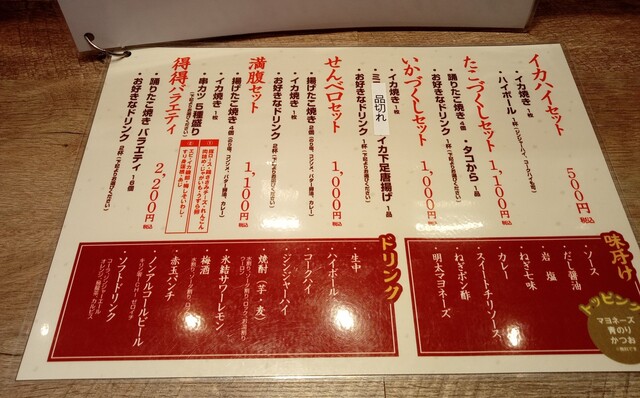 イカハイセット
・イカ焼き 1枚
・ハイボール 1杯
500円 税込
たこづくしセット
・踊りたこ焼き 4個 ・タコから 1皿
・お好きなドリンク 1杯(下記よりお選びください)
1,100円 税込
いかづくしセット
・イカ焼き 1枚
・ミニ 品切れ イカ下足唐揚げ 1皿
・お好きなドリンク 1杯(下記よりお選びください)
1,000円 税込
せんべロセット
・揚げたこ焼き 2個
・イカ焼き 1枚
・お好きなドリンク 2杯(下記よりお選びください)
1,000円 税込
満腹セット
・揚げたこ焼き 4個
・イカ焼き 1枚
・串カツ 5種盛り
1,100円 税込
得得バラエティ
・踊りたこ焼き バラエティ
・お好きなドリンク 2杯
2,200円 税込
味付け
・ソース
・だし醤油
・岩塩
・ねぎ七味
・カレー
・スイートチリソース
・ねぎポン酢
・明太マヨネーズ
トッピング
マヨネーズ
青のり
かつお
ドリンク
・生中
・ハイボール
・ジンジャーハイ
・コークハイ
・焼酎(芋・麦)
・氷結サワーレモン
・梅酒
・赤玉パンチ
・ノンアルコールビール
・ソフトドリンク